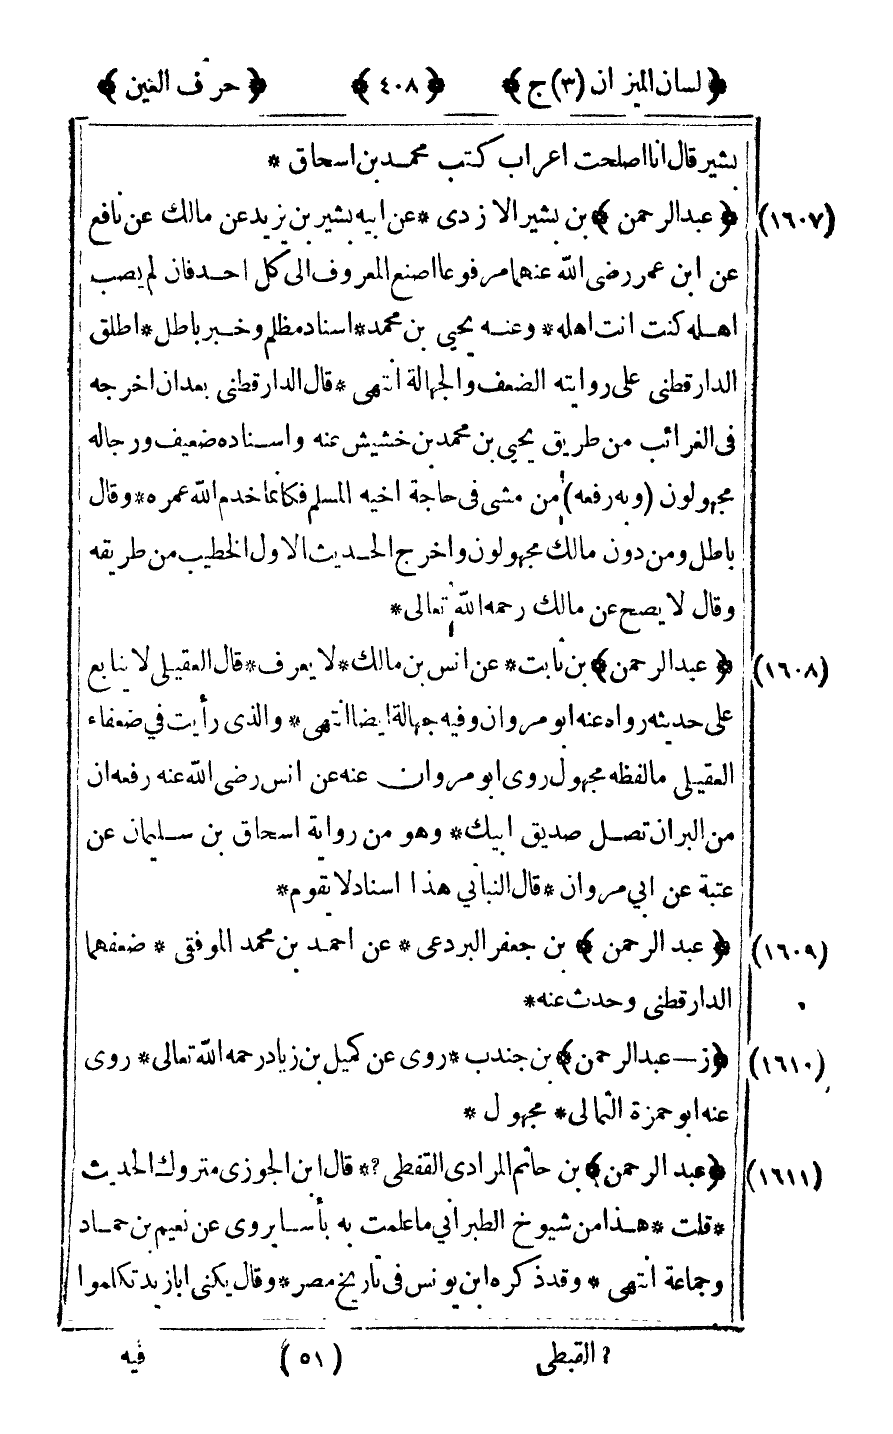 ﴿ لسان الميزان (٣) ج ﴾ ﴿ ٤٠٨ ﴾ ﴿ حرف العين ﴾
بشير قال انا اصلحت اعراب كتب محمد بن اسحاق *
(١٦٠٧) ﴿ عبد الرحمن ﴾ بن بشير الازدى * عن ابيه بشير بن يزيد عن مالك عن نافع
عن ابن عمر رضى الله عنهما مرفوعا اصنع المعروف الى كل احد فان لم يصب
اهله كنت انت اهله * وعنه يحيى بن محمد * اسناد مظلم وخبر باطل * اطلق
الدارقطنى على روايته الضعف والجهالة انتهى * قال الدارقطنى بعد ان اخرجه
فى الغرائب من طريق يحيى بن محمد بن خشيش عنه واسناده ضعيف ورجاله
مجهولون (وبه رفعه) من مشى فى حاجة اخيه المسلم فكانما خدم الله عمره * وقال
باطل ومن دون مالك مجهولون واخرج الحديث الاول الخطيب من طريقه
وقال لا يصح عن مالك رحمه الله تعالى *
(١٦٠٨) ﴿ عبد الرحمن ﴾ بن ثابت * عن انس بن مالك * لا يعرف * قال العقيلى لا يتابع
على حديثه رواه عنه ابو مروان وفيه جهالة ايضا انتهى * والذى رأيت في ضعفاء
العقيلى ما لفظه مجهول روى ابو مروان عنه عن انس رضى الله عنه رفعه ان
من البر ان تصل صديق ابيك * وهو من رواية اسحاق بن سليمان عن
عتبة عن ابي مروان * قال النباتي هذا اسناد لا يقوم *
(١٦٠٩) ﴿ عبد الرحمن ﴾ بن جعفر البردعى * عن احمد بن محمد الموفقى * ضعفهما
الدارقطنى وحدث عنه *
(١٦١٠) ﴿ ز — عبد الرحمن ﴾ بن جندب * روى عن كميل بن زياد رحمه الله تعالى * روى
عنه ابو حمزة الثمالى * مجهول *
(١٦١١) ﴿ عبد الرحمن ﴾ بن حاتم المرادى القفطى ? * قال ابن الجوزى متروك الحديث
* قلت * هذا من شيوخ الطبراني ما علمت به بأسا يروى عن نعيم بن حماد
وجماعة انتهى * وقد ذكره ابن يونس فى تاريخ مصر * وقال يكنى ابا زيد تكلموا
? القبطى (٥١) فيه